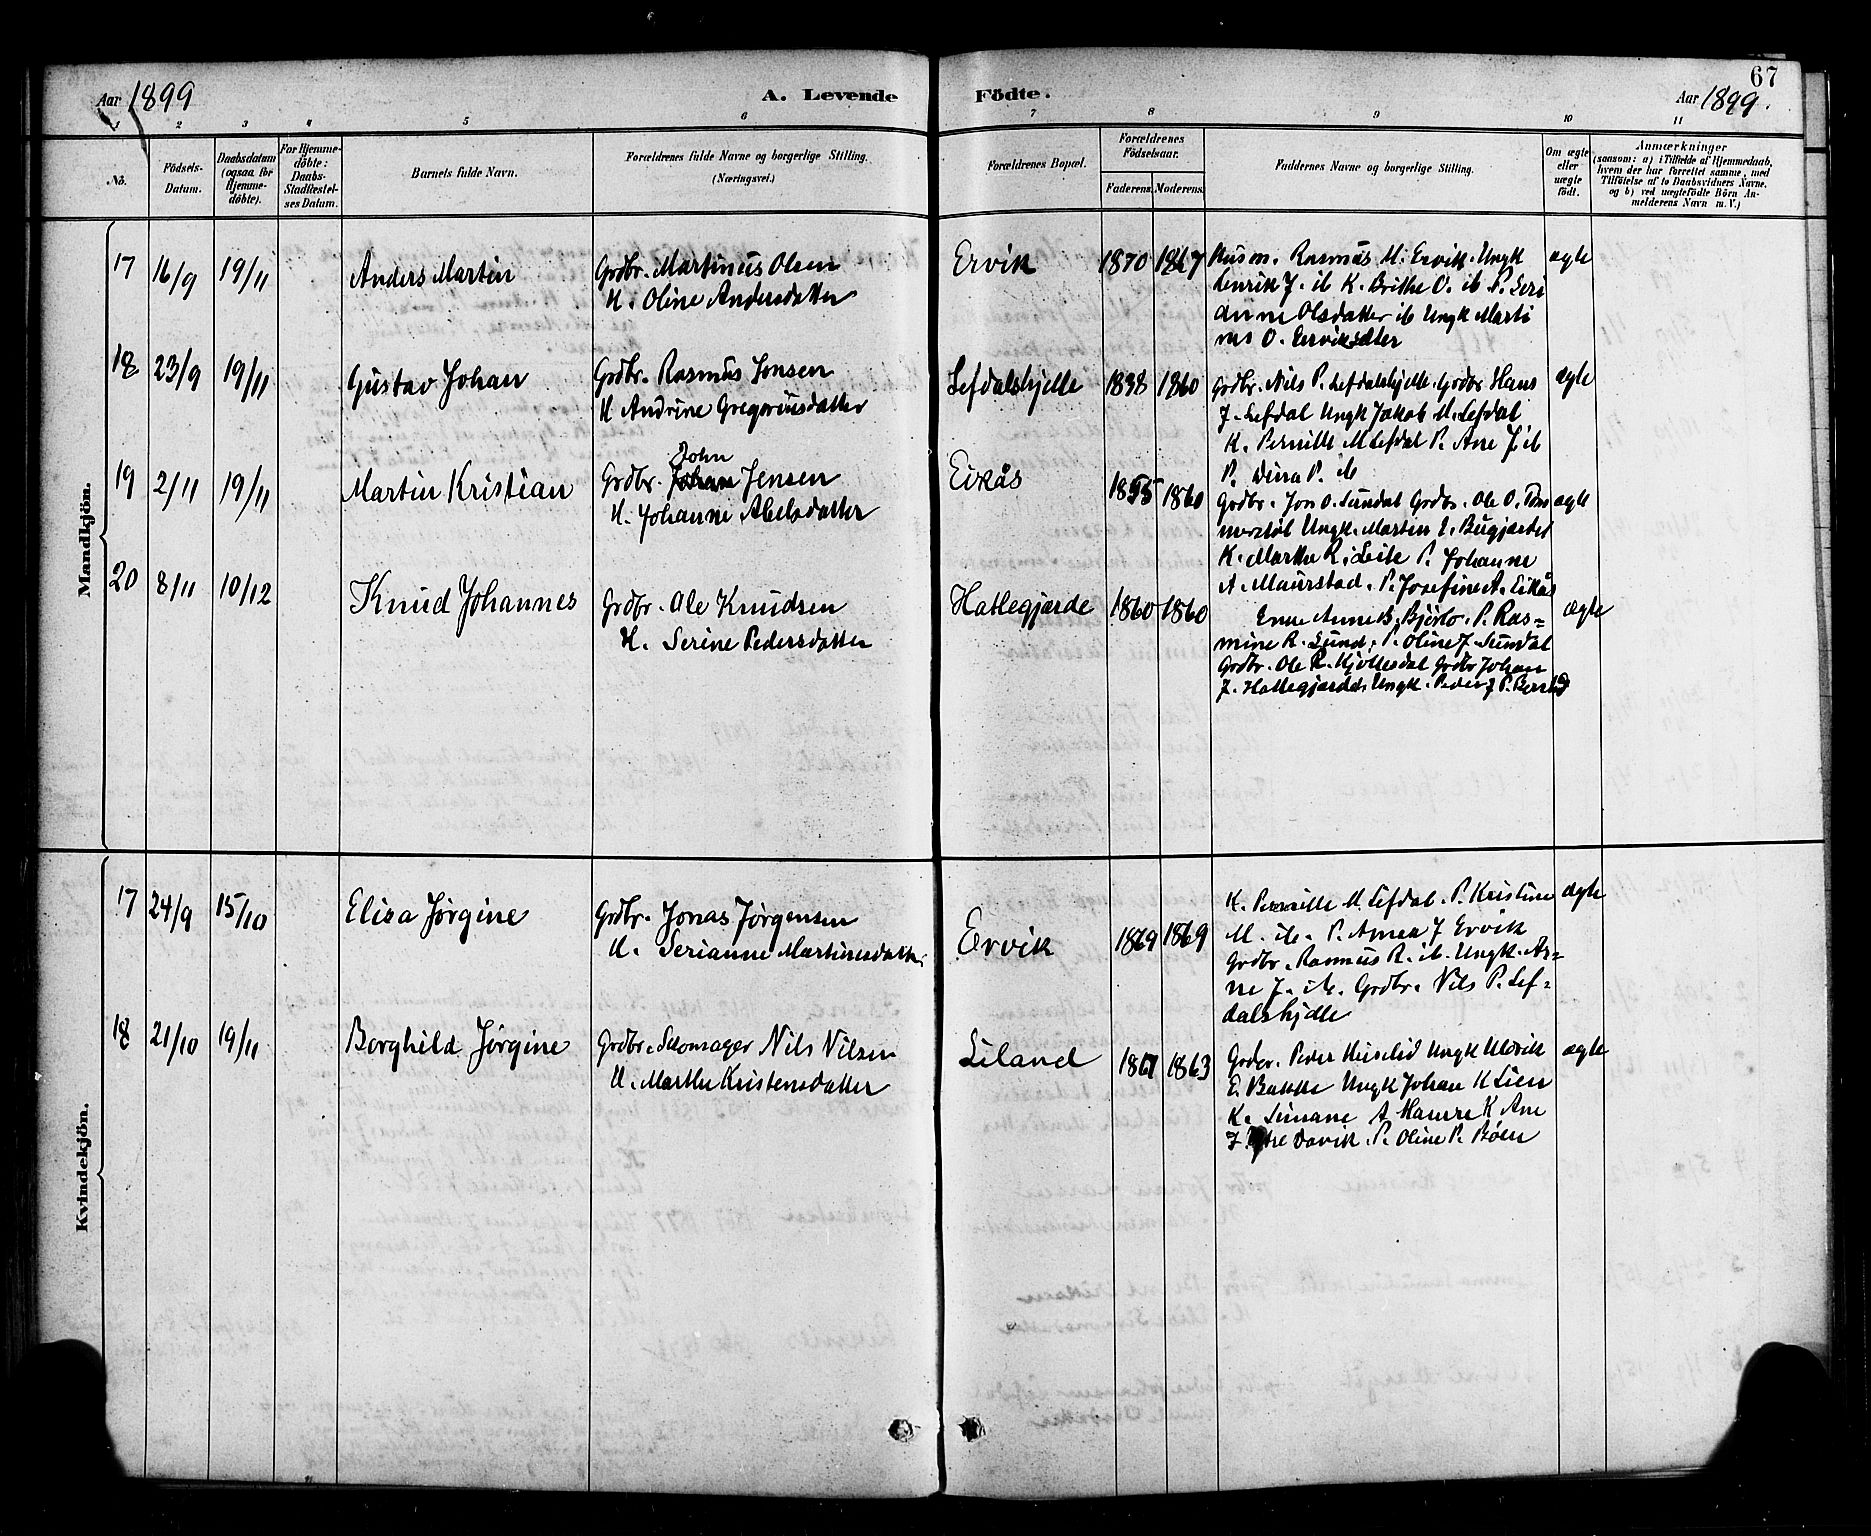 67
Aar 1899
A. Levende
Födte.
Aar 1899.
1 2 3 4 5 6 7 8 9 10 11
No.
Födsels-
Datum.
Daabsdatum
(ogsaa for
Hjemme-
döbte).
For Hjemme-
döbte:
Daabs-
Stadfæstel-
ses Datum.
Barnets fulde Navn.
Forældrenes fulde Navne og borgerlige Stilling.
(Næringsvei.)
Forældrenes Bopæl.
Forældrenes
Födselsaar.
Faderens. Moderens.
Faddernes Navne og borgerlige Stilling.
Om ægte
eller
uægte
født.
Anmærkninger
(saasom: a) i Tilfælde af Hjemmedaab,
hvem der har forrettet samme, med
Tilföielse af to Daabsvidners Navne,
og b) ved uægtefödte Börn An-
melderens Navn m. V.)
Mandkjön.
17 16/9 19/11 Anders Martin
Grdbr. Martinus Olsen
H. Oline Andersdatter
Ervik 1870 1867
Husm. Rasmus M. Ervik. Ungk
Henrik J. ib K. Brithe O. ib P. Seri
anne Olsdatter ib Ungk Marti
nus O. Erviksæter
ægte
18 23/9 19/11 Gustav Johan
Grdbr. Rasmus Jonsen
H Andrine Gregoriusdatter
Lefdalshjelle 1838 1860
Grdbr. Nils P. Lefdalshjelle. Grdbr Hans
J. Lefdal Ungk Jakob M. Lefdal
K. Pernille M Lefdal P. Ane J ib
P. Dina P. ib
ægte
19 2/11 19/11 Martin Kristian
John
Grdbr. Johan Jensen
H. Johanne Abelsdatter
Eikås 1855 1860
Grdbr. Jon O. Sundal Grdbr. Ole O. Tom
merstøl Ungk. Martin
K. Marthe R. Leite P. Johanne
A. Maurstad. P. Josefine A. Eikås
ægte
20 8/11 10/12 Knud Johannes
Grdbr. Ole Knudsen
H. Serine Pedersdatter
Hatlegjærde 1860 1860
Enke Anne B. Bjørlo. P. Ras=
mine R. Lund. P. Oline J. Sundal
Grdbr. Ole R. Hjellesdal Grdbr Johan
J. Hatlegjærde. Ungk. Peder J P.
ægte
Kvindekjön.
17 24/9 15/10 Elisa Jørgine
Grdbr. Jonas Jørgensen
H. Serianne Martinusdatter
Ervik 1869 1869
K. Pernille M. Lefdal. P. Kristine
M. ib. P. Amea J Ervik
Grdbr. Rasmus R. ib. Ungk. Ar=
ne J. ib. Grdbr. Nils P. Lef=
dalshjelle
ægte
18 21/10 19/11 Borghild Jørgine
Grdbr. Skomager Nils Nilsen
H. Marthe Kristensdatter
Liland 1867 1863
Grdbr. Peder Huselid Ungk Uldrik
E. Bakke Ungk Johan K Lien
K. Simane A Hamre K Ane
J Ytre Davik. P. Oline P. Bøen
ægte